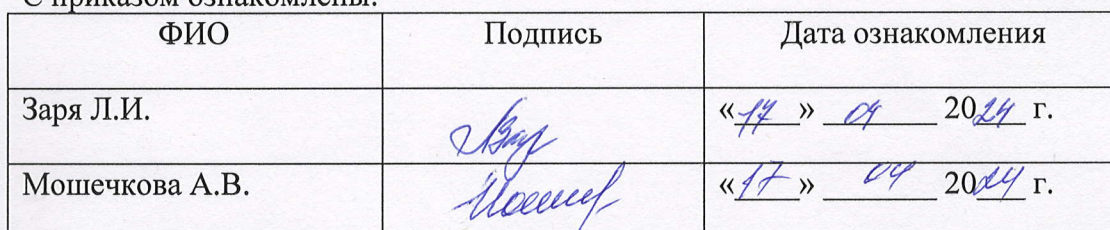 С приказом ознакомлены:
ФИО Подпись Дата ознакомления
Заря Л.И. «17» 04 2024 г.
Мошечкова А.В. «17» 04 2024 г.